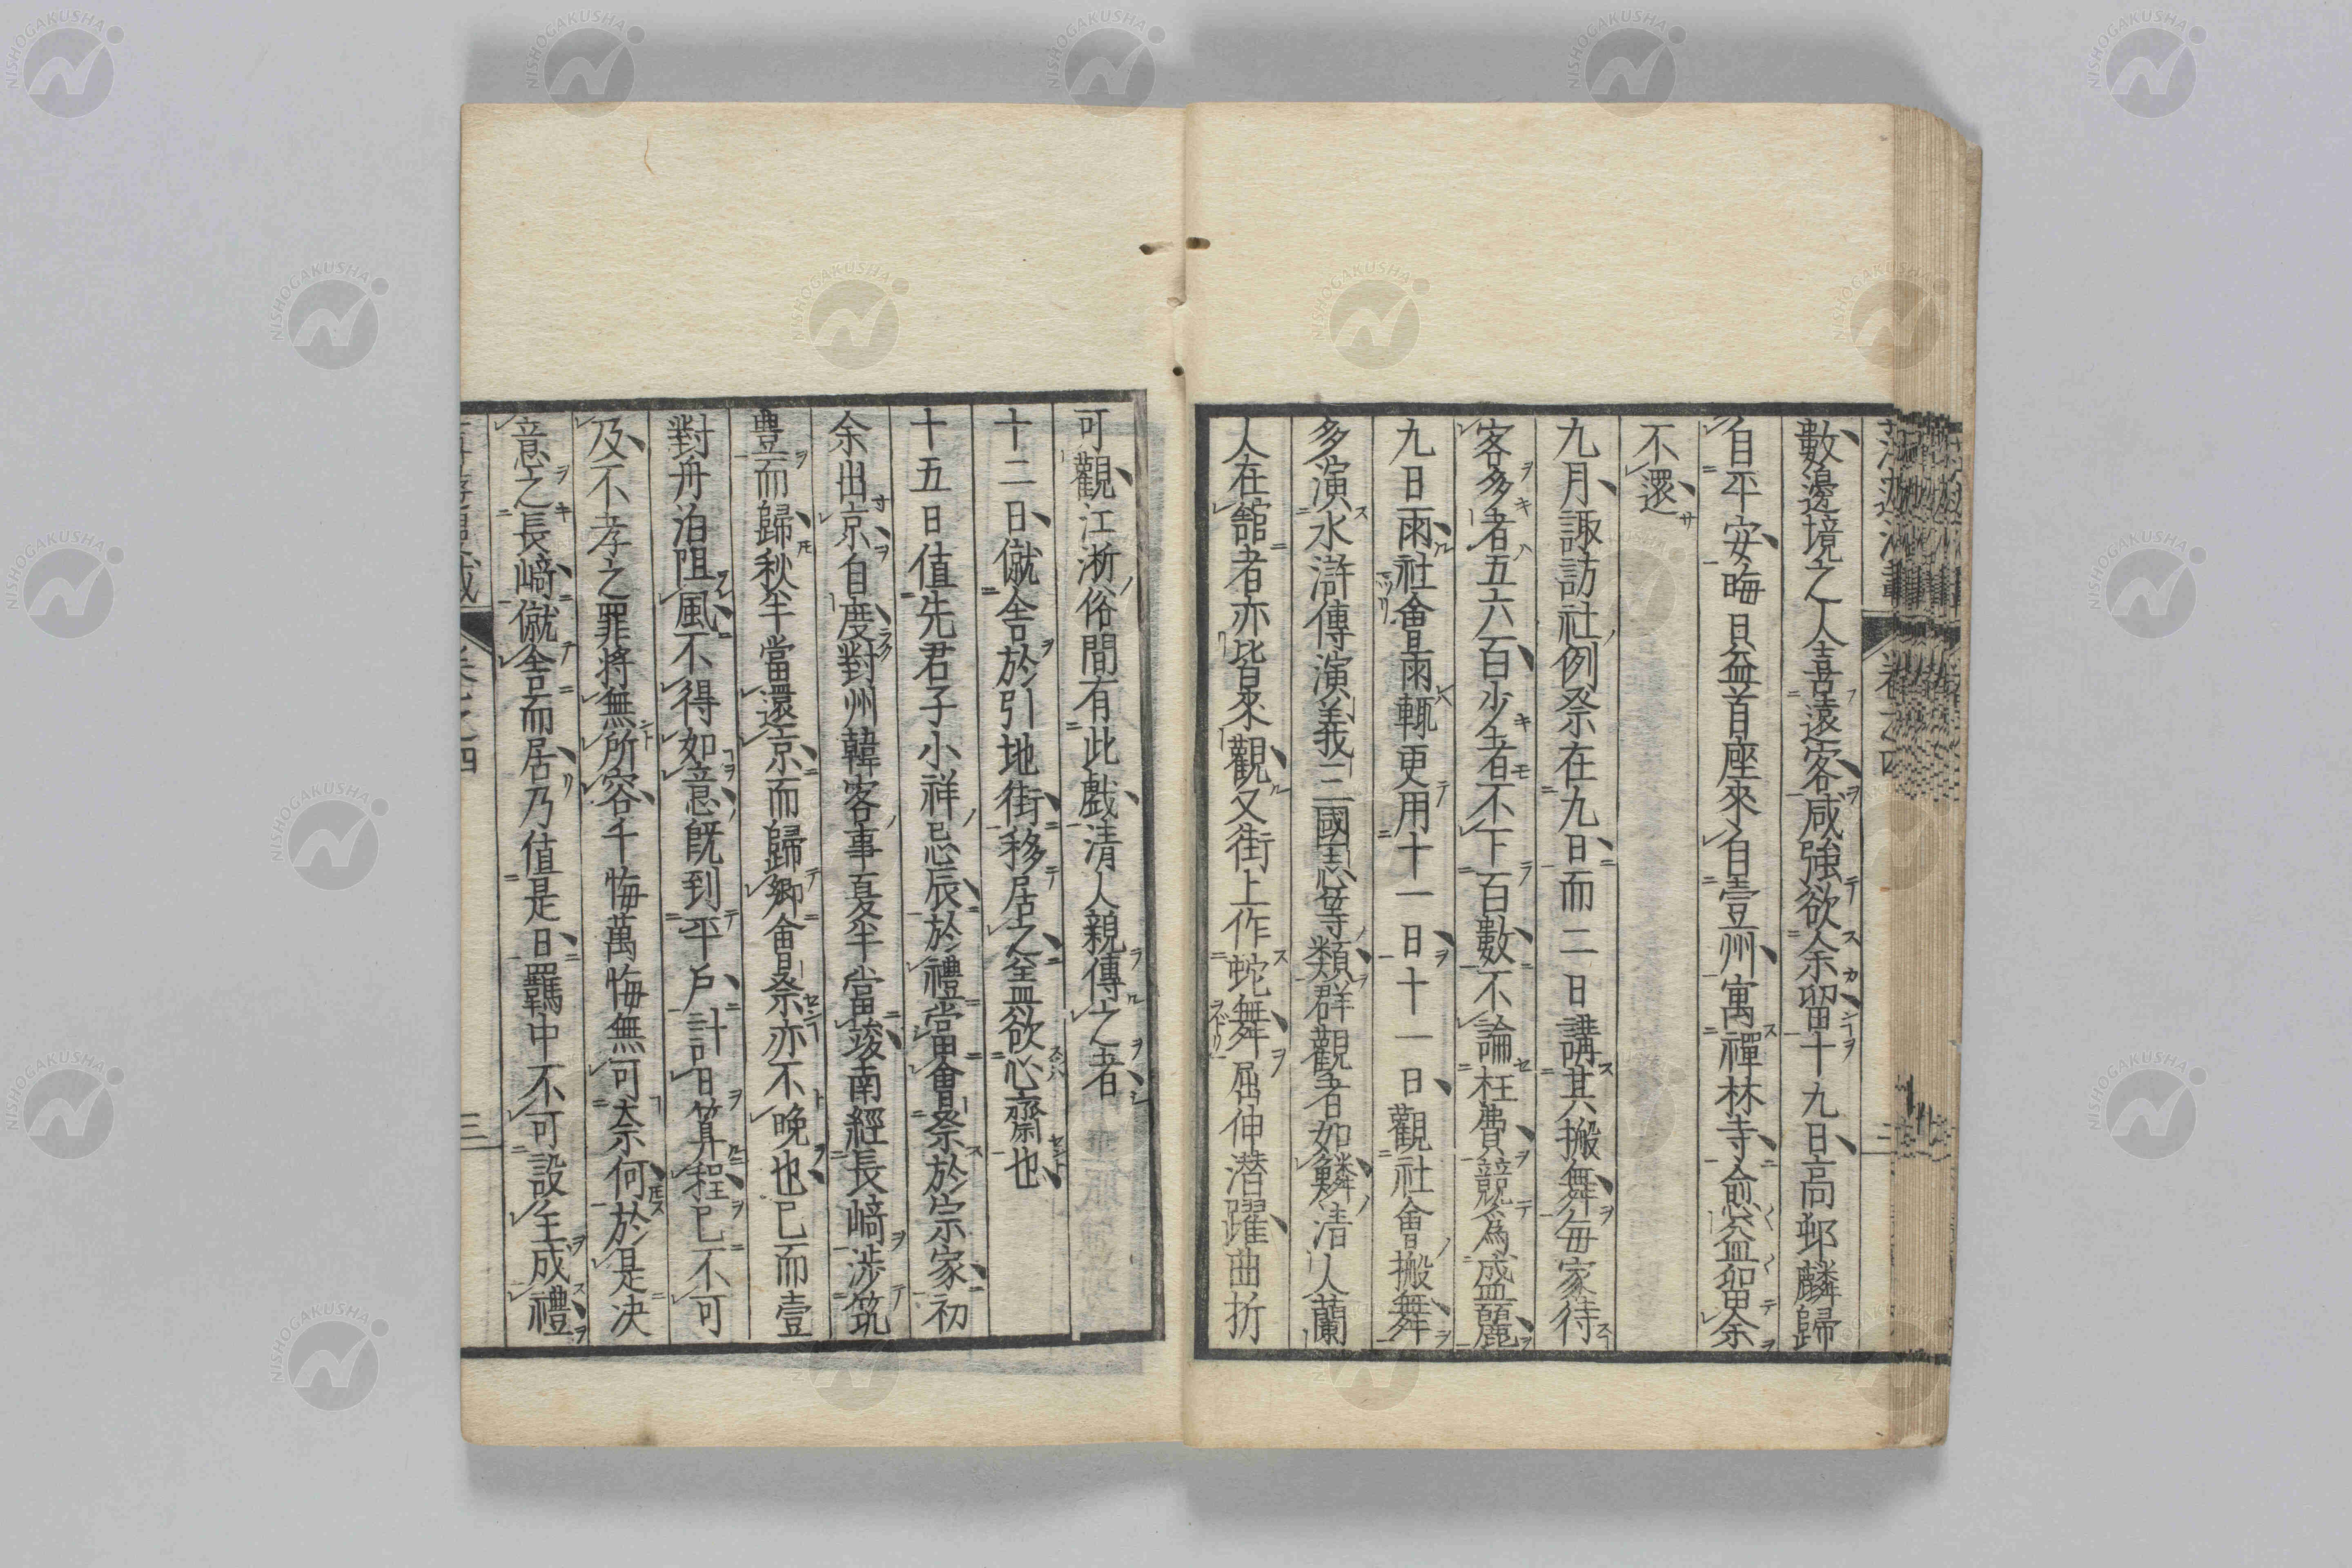 數邊境之人喜遠客咸強欲余留十九日高邨麟歸
自平安晦日益首座來自壹州寓禪林寺愈益留余
不還
九月諏訪社例祭在九日而二日講其搬舞每家待
客多者五六百少者不下百數不論枉費競為盛麗
九日雨社會畏雨輒更用十一日十一日觀社會搬舞
多演水滸傳演義三國志等類群觀者如鱗清人蘭
人在舘者亦皆來觀又街上作蛇舞屈伸潜躍曲折
可觀江淅俗間有此戲清人親傳之者
十二日僦舍於引地街移居之筌無欲心齋也
十五日值先君子小祥忌辰於禮當會祭於宗家初
余出京自度對州韓客事夏半當竣南經長﨑涉筑
豊而歸秋半當還京而歸鄉會祭亦不晚也已而壹
對舟泊阻風不得如意旣到平戶計日算程已不可
及不孝之罪將無所容千悔萬悔無可柰何於是决
意之長﨑僦舍而居乃值是日羈中不可設主成禮
卷之四
三